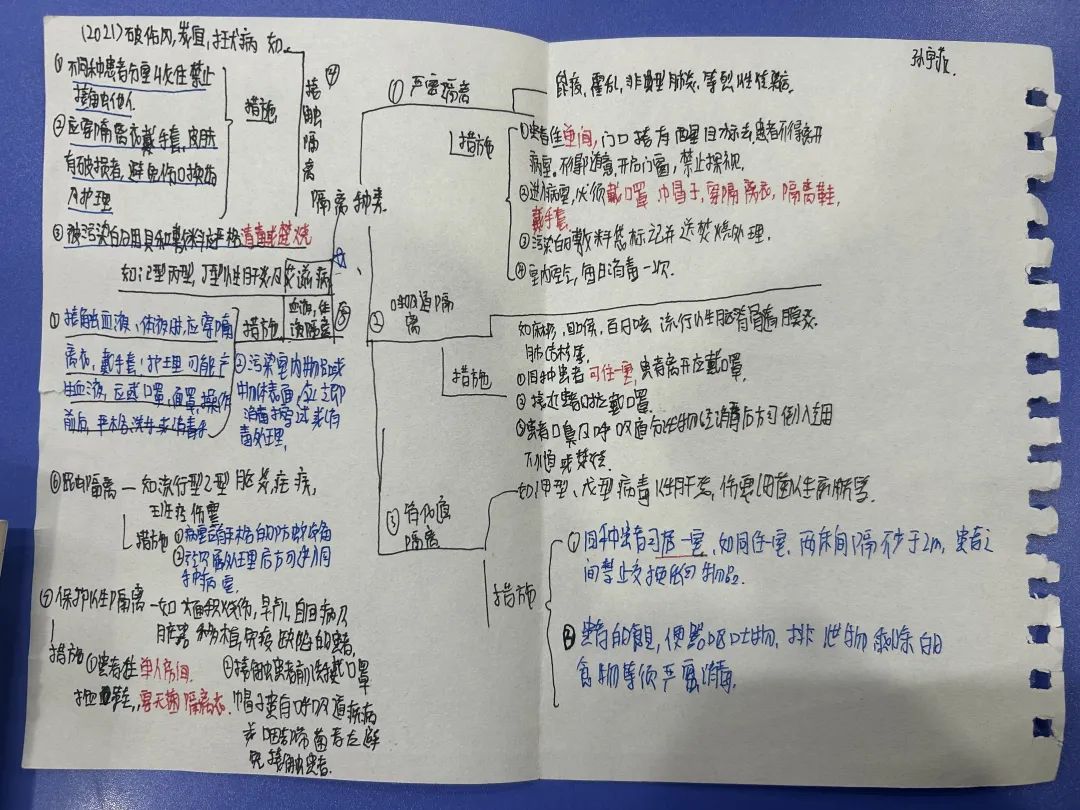 (2021)破伤风,炭疽,狂犬病 如
① 不同种患者分室收住禁止
接触他人
② 应穿隔离衣戴手套,皮肤
有破损者,避免伤口换药
及护理
③ 被污染的用具和敷料应严格消毒或焚烧
措施
④
接触隔离
隔离种类
① 严密隔离
鼠疫,霍乱,非典型肺炎,等烈性传染病
措施
①患者住单间,门口挂有醒目标志,患者不得离开
病室。不得随意开启门窗,禁止探视。
②进入病室,必须戴口罩 帽子,穿隔离衣,隔离鞋,
戴手套。
③污染的敷料袋标记并送焚烧处理。
④室内空气,每日消毒一次.
如乙型丙型,丁型性肝炎及艾滋病
血液,体液隔离
⑤
措施
① 接触血液、体液时,应穿隔
离衣,戴手套;护理可能产
生血液,应戴口罩,面罩,操作
前后,严格洗手或消毒手
②污染室内物品或
物体表面,应立即
消毒擦拭或消
毒处理,
② 呼吸道隔离
如麻疹,白喉,百日咳 流行性脑脊髓膜炎
肺结核等,
措施
①同种患者可住一室,患者离开应戴口罩,
②接近患者时应戴口罩
③患者口鼻及呼吸道分泌物经消毒后方可倒入专用
下水道或焚烧
③ 消化道隔离
如甲型、戊型病毒性肝炎,伤寒细菌性痢疾等
措施
① 同种患者可居一室,如同住一室,两床间隔不少于2m,患者之
间禁止交换任何物品。
② 患者的食具,便器呕吐物,排泄物剩余的
食物等须严密消毒
⑥昆虫隔离 — 如流行型乙型脑炎疟疾,
斑疹伤寒
措施
①病室有严格的防蚊设备
②经灭虱处理后方可进入同
种病室
⑦保护性隔离 — 如大面积烧伤,早产儿白血病及
脏器移植,免疫缺陷的患者,
措施
①患者住单人房间,
穿无菌隔离衣.
②接触患者前洗手戴口罩
帽子患有呼吸道疾病
或咽部带菌者应避
免接触患者.